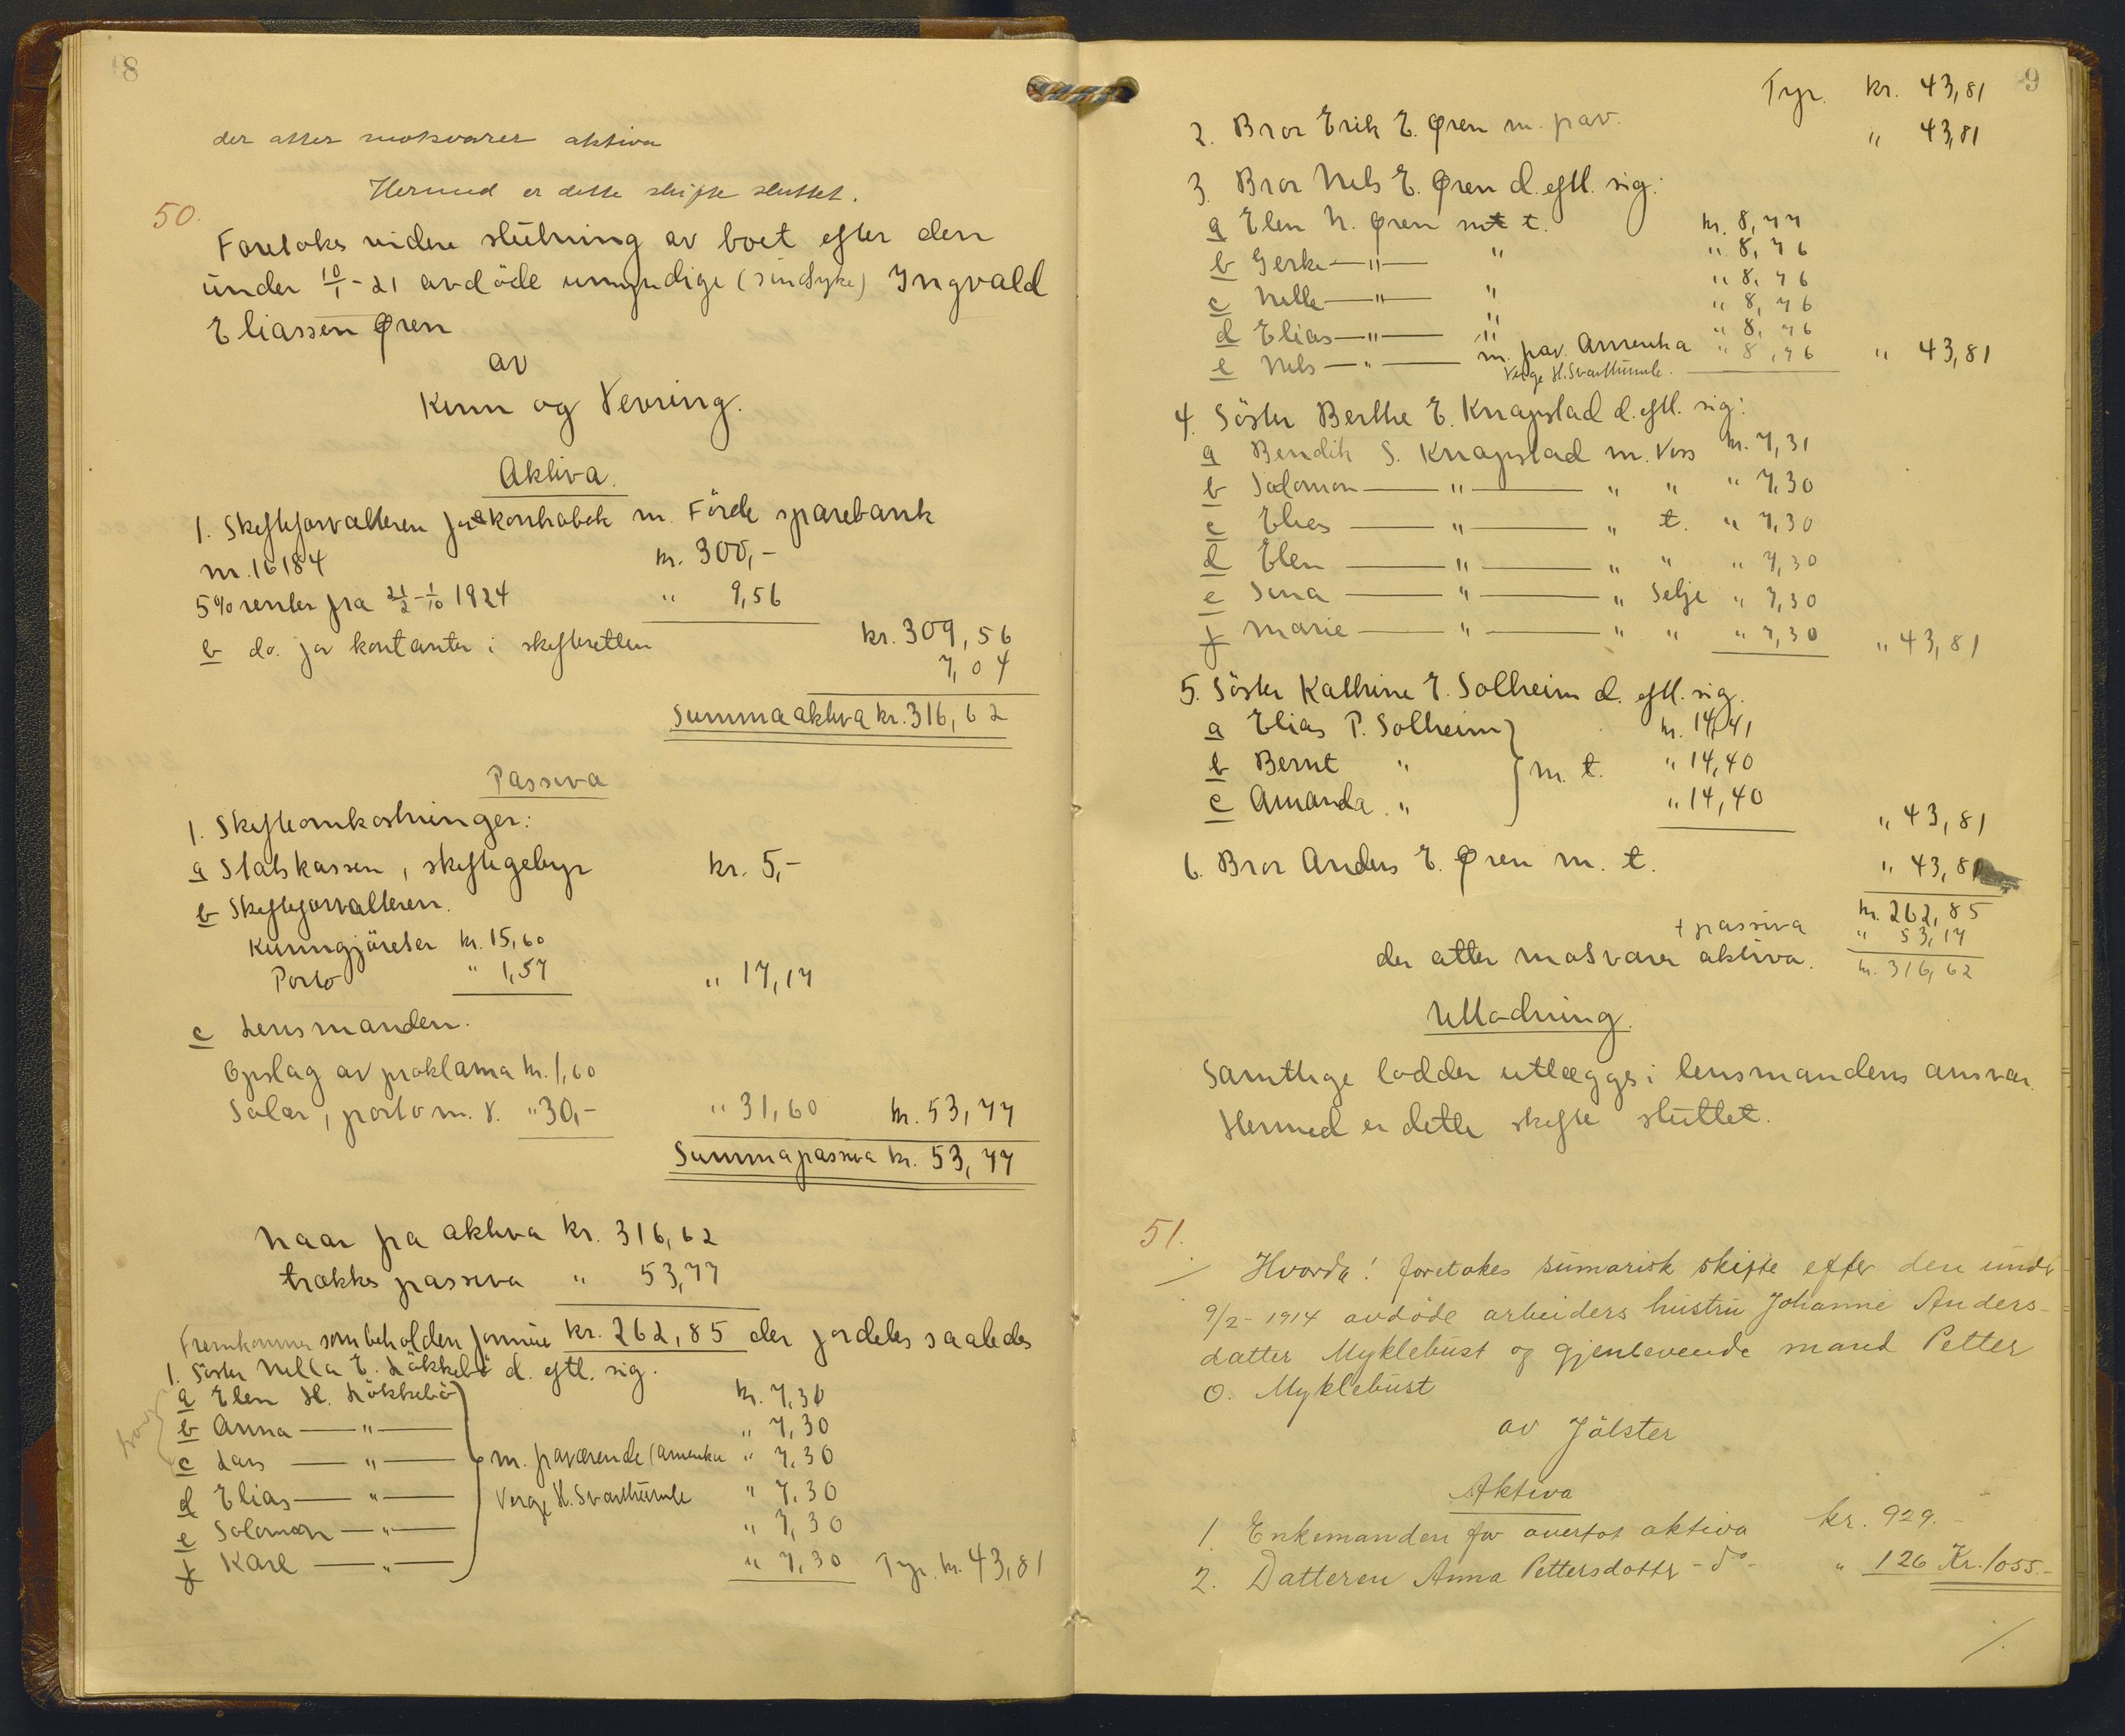 8
der atter motsvarer aktiva
Hermed er dette skifte sluttet.
50.
Foretokes videre slutning av boet efter den
under 10/1-21 avdöde umyndige (sindsyke) Ingvald
Eliassen Øren
av
Kinn og Vevring.
Aktiva.
1. Skifteforvalteren for kontrabok m. Förde sparebank
nr. 16184 kr. 300,-
5% renter fra 21/2-1/10 1924 " 9,56
kr. 309,56
b do. for kontanter i skifteretten 7,04
Summa aktiva kr. 316,62
Passiva
1. Skifteomkostninger:
a Statskassen, skiftegebyr kr. 5,-
b Skifteforvalteren.
Kunngjörelser kr. 15,60
Porto " 1,57 " 17,17
c Lensmanden.
Opslag av proklama kr. 1,60
Salær, porto m. v. " 30,- " 31,60 kr. 53,77
Summa passiva kr. 53,77
Naar fra aktiva kr. 316,62
trækkes passiva " 53,77
Fremkommer som beholden formue kr. 262,85 der fordeles saaledes
1. Söster Nella E. Løkkebö d. eftl. sig.
a Elen H. Løkkebö kr. 7,30
b Anna — " — " 7,30
c Lars — " — m. fraværende (Amerika " 7,30
d Elias — " — Verge H. Svarthumle " 7,30
e Solomon — " — " 7,30
f Karl — " — " 7,30 Tyr. kr. 43,81
9
Tyr. kr. 43,81
2. Bror Erik E. Øren m. frav. " 43,81
3. Bror Nels E. Øren d. eftl. sig:
a Elen N. Øren m t. kr. 8,77
b Gerke — " — " " 8,76
" 8,76
c Nelle — " — " " 8,76
d Elias — " — " " 8,76
e Nels — " — m. frav. Amerika " 8,76 " 43,81
Verge H. Svarthumle.
4. Söster Berthe E. Knapstad d. eftl. sig:
a Bendik S. Knapstad m. Voss kr. 7,31
b Solomon — " — " " " 7,30
c Elias — " — " t. " 7,30
d Elen — " — " " " 7,30
e Sina — " — " Selje " 7,30
f Marie — " — " " " 7,30 " 43,81
5. Söster Kathrine E. Solheim d. eftl. sig.
a Elias P. Solheim kr. 14,41
b Bernt " m. t. " 14,40
c Amanda. " " 14,40
" 43,81
6. Bror Anders E. Øren m. t. " 43,81
kr. 262,85
+ passiva " 53,77
der atter motsvarer aktiva. kr. 316,62
Utlodning.
Samtlige lodder utlægges i lensmandens ansvar.
Hermed er dette skifte sluttet.
51.
Hvorda! foretokes sumarisk skifte efter den under
9/2-1914 avdöde arbeiders hustru Johanne Anders-
datter Myklebust og gjenlevende mand Petter
O. Myklebust
av Jölster
Aktiva
1. Enkemanden for overtat aktiva kr. 929.-
2. Datteren Anna Pettersdotter - do - " 126 Kr. 1055.-